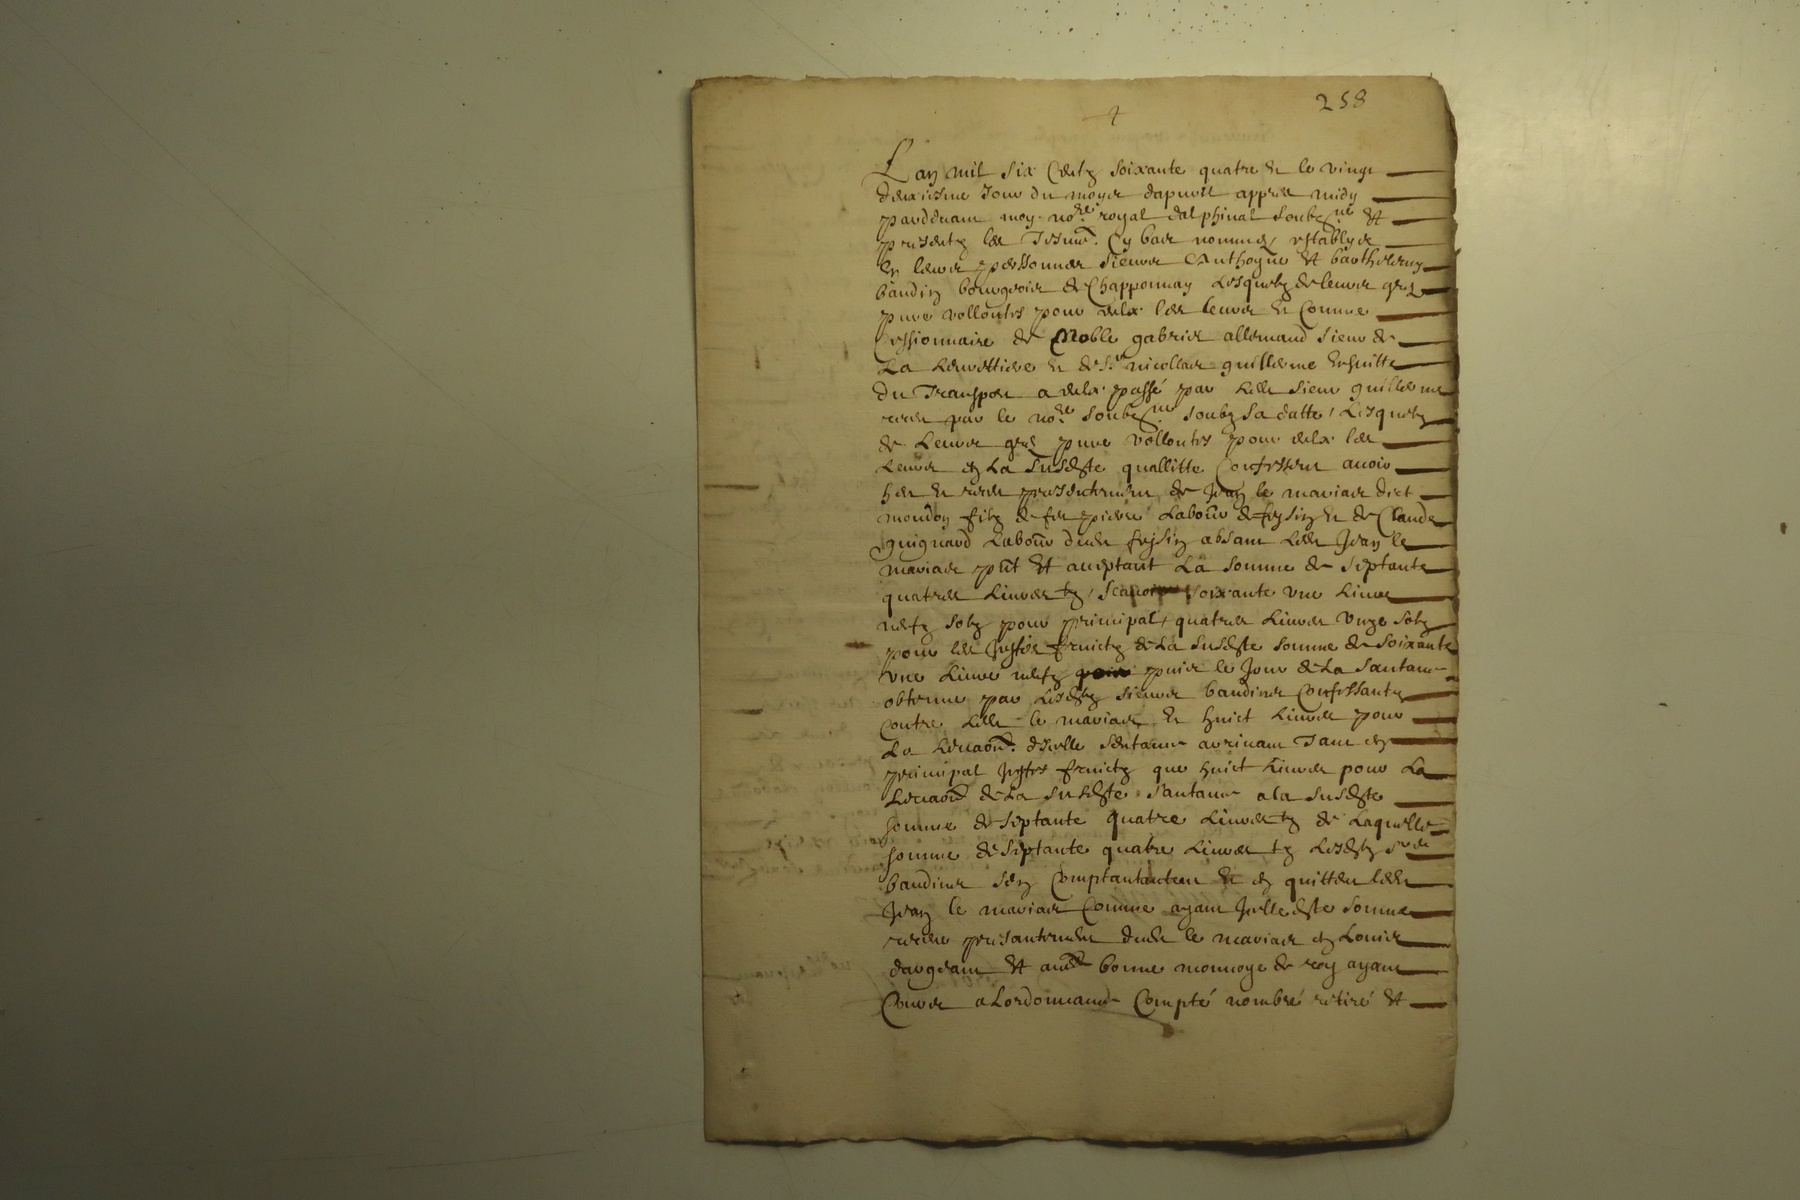 258
Lan mil six centz soixante quatre et le vingt
deuxiesme jour du moys dapvril appres midy
pardevant moy no.re royal dalphinal soubz.né et
presentz les tesmo. cy bas nommes establys
en leurs personnes sieurs Anthoyne et barthelemy
baudin bourgeois de Chapponnay lesquelz de leurs grez
pure vollontes pour eulx les leurs et comme
cessionnaire de Noble gabriel allemand sieur de
La et de s.r nicollas guillerme ensuitte
du transport a eulx passé par led sieur guillerme
receu par le no.re soubz.né soubz sa datte, Lesquelz
de leurs grez pure vollontes pour eulx les
Leurs en la susdte quallitte confessent avoir
heu et receu presentement de Jean le mariar dict
mondon filz de feu pierre Labour de feysin et de Claude
guignard Labour dud feysin absant led Jean le
mariar pnt et acceptant La somme de septante
quatres Livres tz, scavoir soixante une Livre
neufz solz pour principal, quatres Livres unze solz
pour les justes fruictz de La susdte somme de soixante
une Livre neufz puis le jour de La santance
obtenue par lesdtz sieurs baudins confessantz
contre led le mariar et huict Livres pour
La d'icelle sentance arrivant tant en
principal justes fruictz que huict Livres pour La
de La susdte santance a la susdte
somme de septante quatre Livres tz de Laquelle
somme de septante quatre Livres tz Lesdtz srs
baudins sen comptantentent et en quittent led
Jean le mariar comme ayant icelle dte somme
receue presantement dud le mariar en Louis
dargeant et autre bonne monnoye de roy ayant
Cours a Lordonnance Compté nombré retiré et